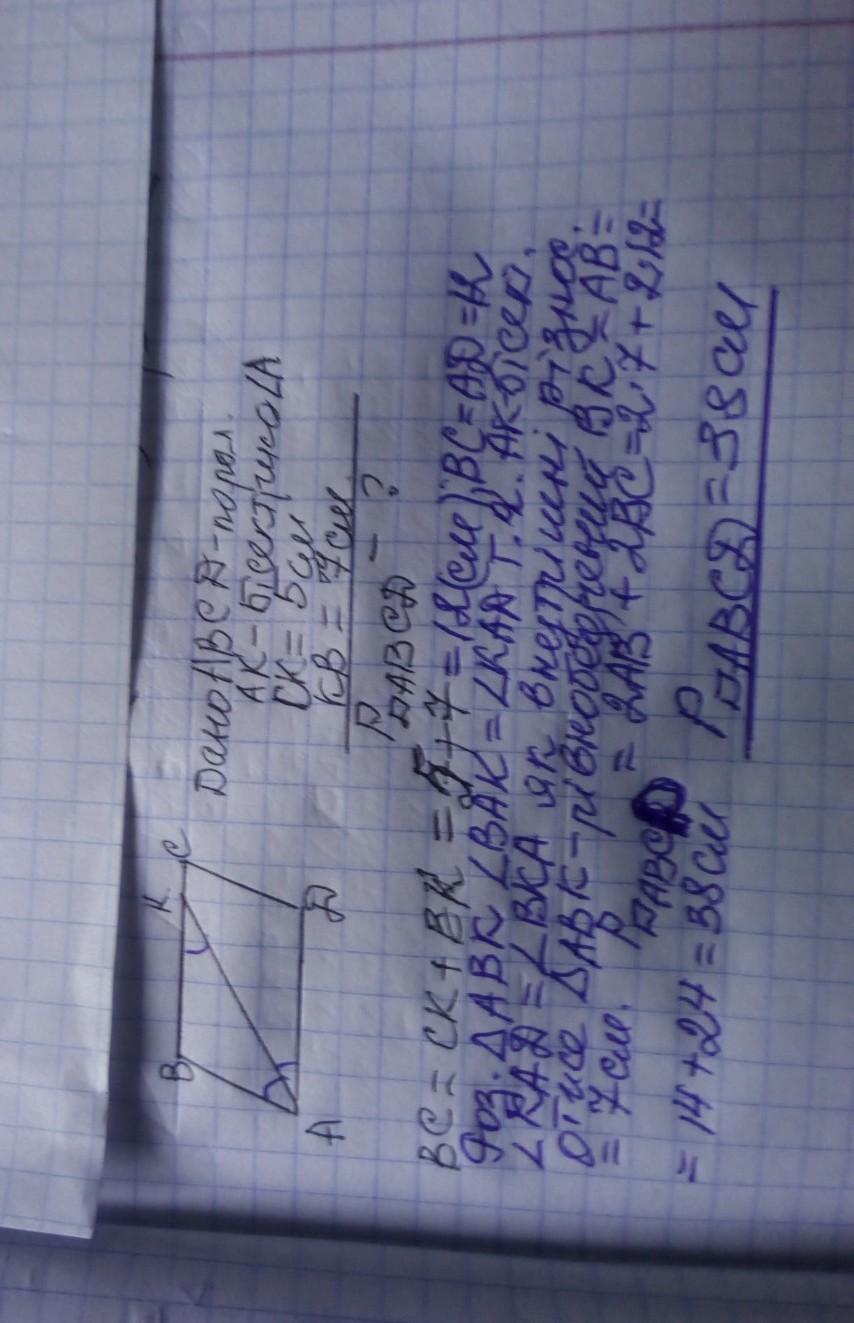 B
K
C
A
D
Дано ABCD - парал.
AK - бісектриса ∠A
CK = 5 см
KB = 7 см
P▱ABCD - ?
BC = CK + BK = 5 + 7 = 12 (см); BC = AD = 12
Роз. ΔABK ∠BAK = ∠KAD т.я. AK-бісект.
∠KAD = ∠BKA як внетрішні різнос.
Отже ΔABK - рівнобедрений BK = AB =
= 7 см. P▱ABCD = 2AB + 2BC = 2·7 + 2·12 =
= 14 + 24 = 38 см P▱ABCD = 38 см